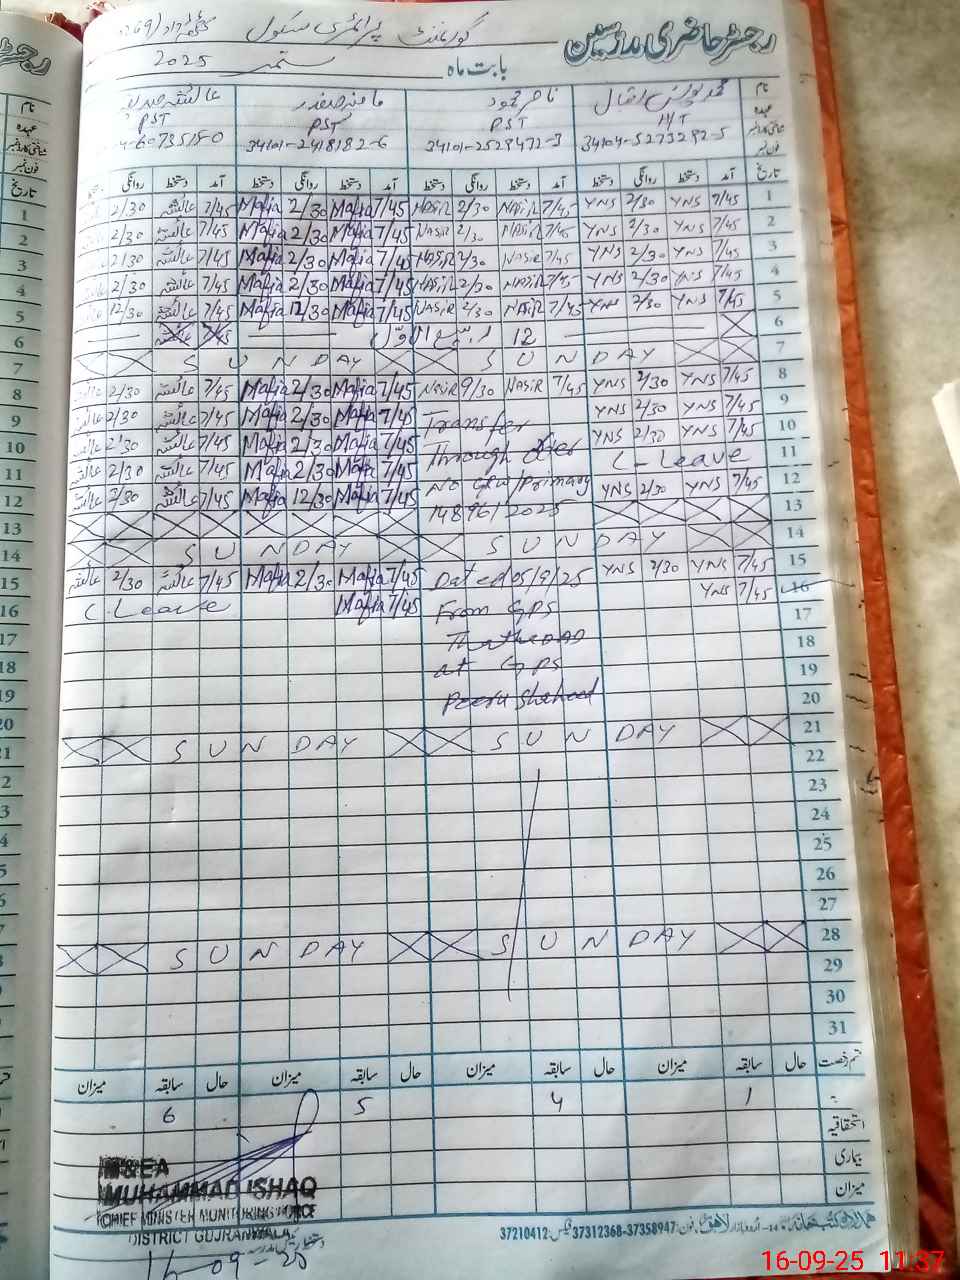 رجسٹر حاضری مدرسین
گورنمنٹ پرائمری سکول
بابت ماہ ستمبر 2025
نام
عہدہ
شناختی کارڈ نمبر
فون نمبر
محمد یونس اقبال
H/T
34104-5273292-5
ناصر محمود
PST
34101-2529472-3
مافیہ صفدر
PST
34101-2418182-6
عائشہ
PST
6073515-0
تاریخ آمد دستخط روانگی دستخط آمد دستخط روانگی دستخط آمد دستخط روانگی دستخط آمد دستخط روانگی
1 7/45 YNS 2/30 YNS 7/45 NASIR 2/30 NASIR 7/45 Mafia 2/30 Mafia 7/45 عائشہ 2/30
2 7/45 YNS 2/30 YNS 7/45 NASIR 2/30 NASIR 7/45 Mafia 2/30 Mafia 7/45 عائشہ 2/30
3 7/45 YNS 2/30 YNS 7/45 NASIR 2/30 NASIR 7/45 Mafia 2/30 Mafia 7/45 عائشہ 2/30
4 7/45 YNS 2/30 YNS 7/45 NASIR 2/30 NASIR 7/45 Mafia 2/30 Mafia 7/45 عائشہ 2/30
5 7/45 YNS 2/30 YNS 7/45 NASIR 2/30 NASIR 7/45 Mafia 12/30 Mafia 7/45 عائشہ 12/30
6 12 ربیع الاول 7/45 عائشہ
7 SUNDAY SUNDAY
8 7/45 YNS 2/30 YNS 7/45 NASIR 9/30 NASIR 7/45 Mafia 2/30 Mafia 7/45 عائشہ 2/30 عائشہ
9 7/45 YNS 2/30 YNS Transfer 7/45 Mafia 2/30 Mafia 7/45 عائشہ 2/30 عائشہ
10 7/45 YNS 2/30 YNS Through 7/45 Mafia 2/30 Mafia 7/45 عائشہ 2/30 عائشہ
11 C-Leave 7/45 Mafia 2/30 Mafia 7/45 عائشہ 2/30 عائشہ
12 7/45 YNS 2/30 YNS No /Primary 7/45 Mafia 12/30 Mafia 7/45 عائشہ 2/30 عائشہ
13 14896/2025
14 SUNDAY SUNDAY
15 7/45 YNS 2/30 YNS Dated 05/9/25 7/45 Mafia 2/30 Mafia 7/45 عائشہ 2/30 عائشہ
16 7/45 YNS From GPS 7/45 Mafia C-Leave
17
18 at GPS
19 Shaheed
20
21 SUNDAY SUNDAY
22
23
24
25
26
27
28 SUNDAY SUNDAY
29
30
31
قسم رخصت حال سابقہ میزان حال سابقہ میزان حال سابقہ میزان حال سابقہ میزان
1 4 5 6
استحقاقیہ
بیماری
میزان
M&EA
MUHAMMAD ISHAQ
CHIEF MINISTER MONITORING FORCE
DISTRICT GUJRANWALA
16-09-25
فون: 37358947-37312368 فیکس: 37210412
16-09-25 11:37